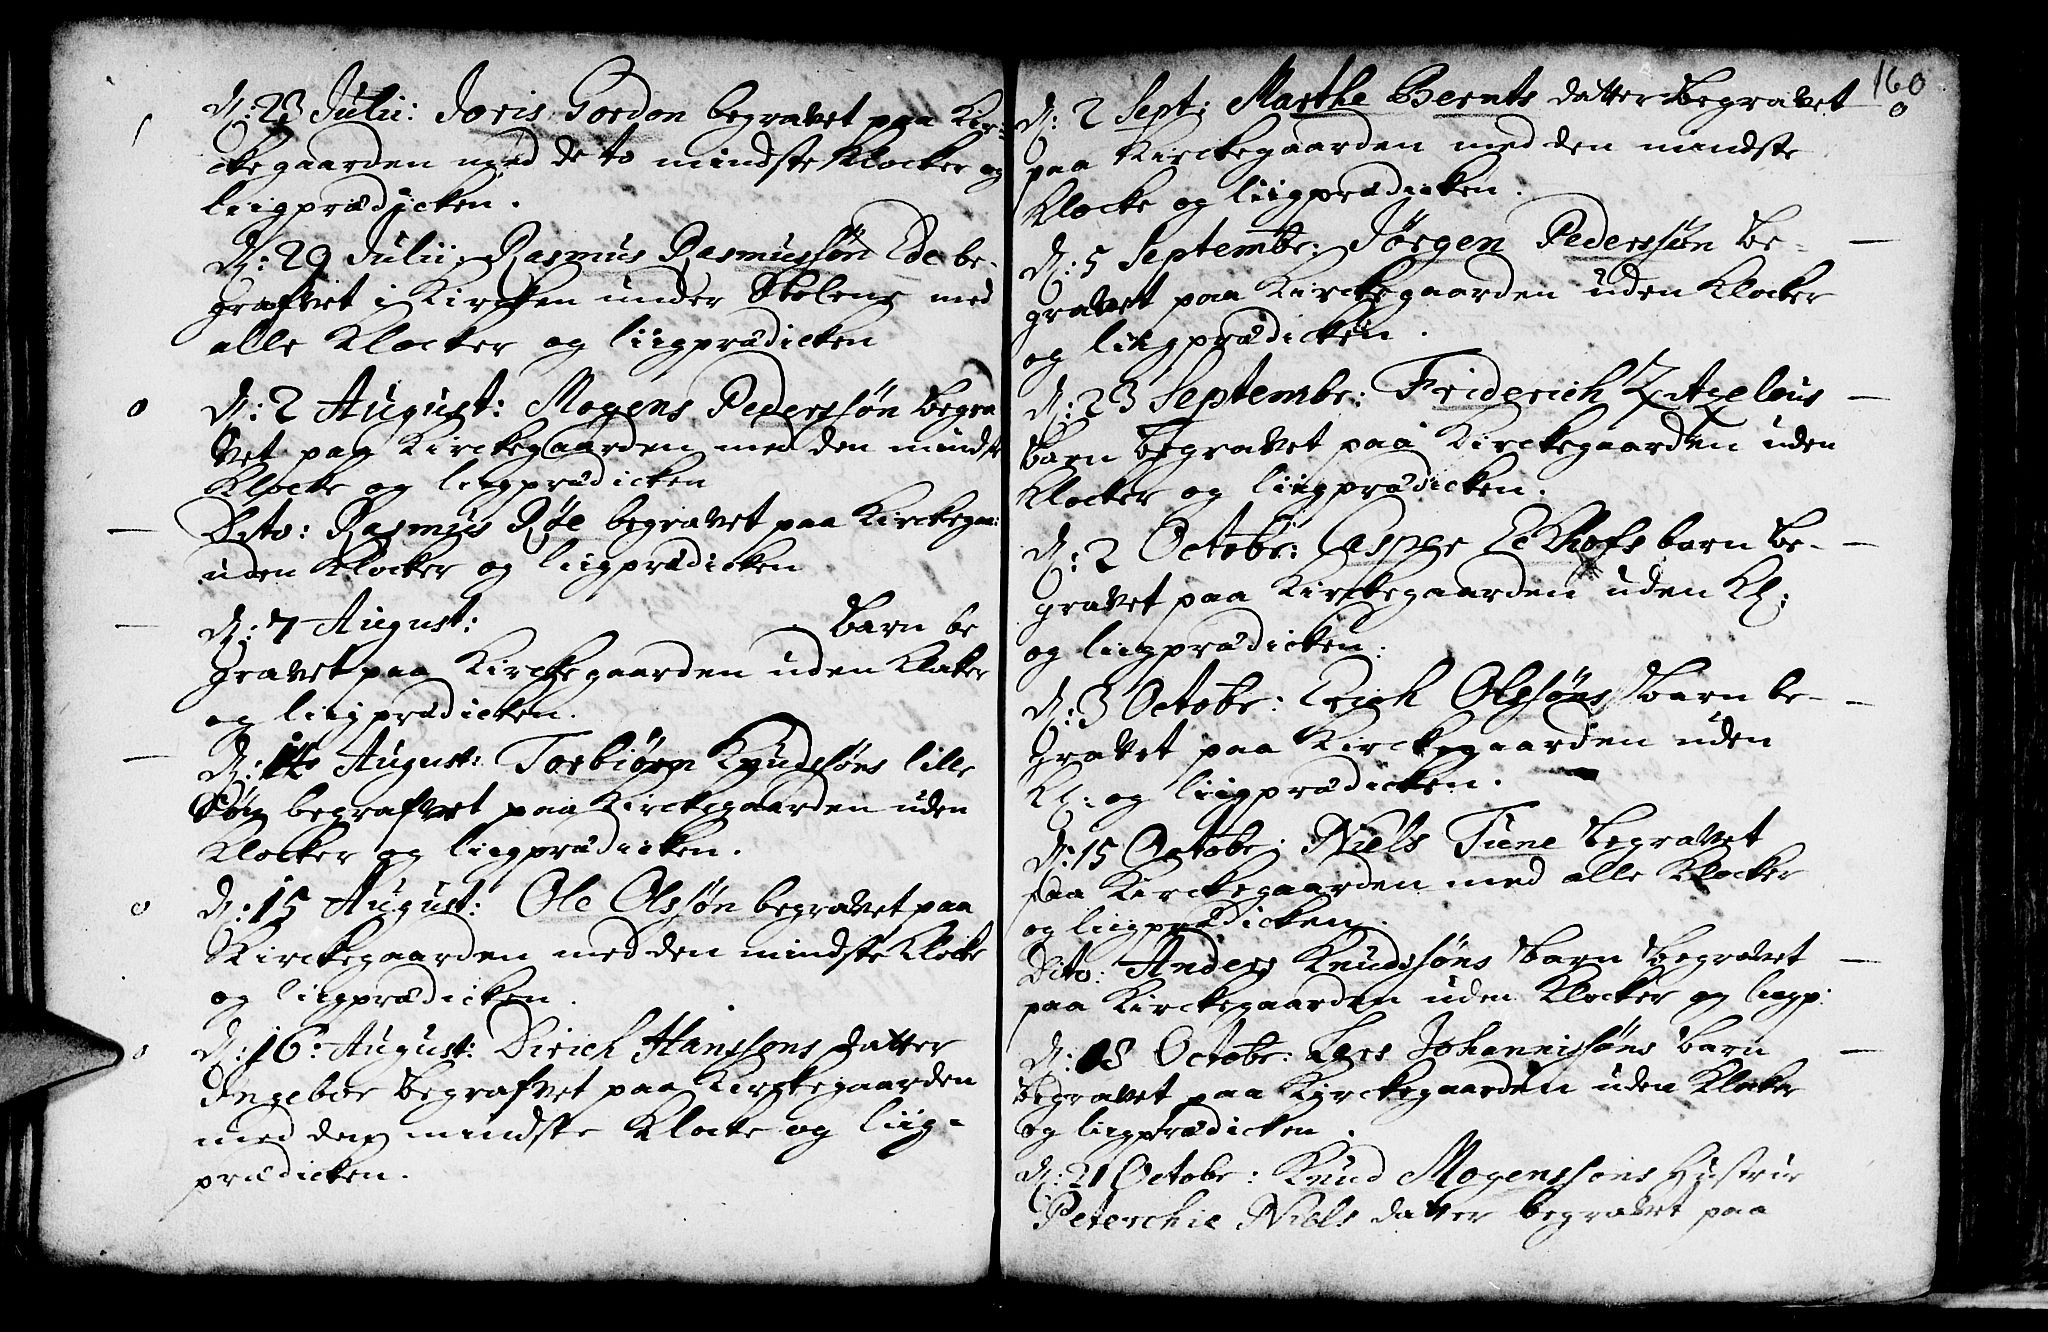 D: 23 Julii: Joris Gordon begravet paa Kir=
cke gaarden med de to mindste Klocker og
liigprædicken.
D: 29 Julii: Rasmus Rasmussøn Ede be-
grafvet i Kircken under Stolene med
alle Klocker og liigprædicken
D: 2 August: Mogens Pederssøn begra
vet paa Kirckegaarden med den mindste
Klocke og liigprædicken
Dito: Rasmus Røe begravet paa Kirckegaa:
uden Klocker og liigprædicken
D: 7 August: Barn be
gravet paa Kirckegaarden uden Klocker
og liigprædicken.
D: August: Torbiørn Knudssøns lille
Søn begrafvet paa Kirckegaarden uden
Klocker og liigprædicken.
D: 15 August: Ole Olssøn begravet paa
Kirckegaarden med den mindste Klocke
og liigprædicken.
D: 16 August: Dirich Hanssøns datter
Ingebor begrafvet paa Kirckegaarden
med den mindste Klocke og liig=
prædicken.
160
D: 2 Sept: Marthe Bernts datter begravet
paa Kirckegaarden med den mindste
Klocke og liigprædicken.
D: 5 Septembr: Jørgen Pederssøn be-
gravet paa Kirckegaarden uden Klocker
og liigprædicken.
D: 23 Septembr: Friderich Axelous
barn begravet paa Kirckegaarden uden
Klocker og liigprædicken.
D: 2 Octobr: Casper Eckhofs barn be-
gravet paa Kirckegaarden uden Kl:
og liigprædicken.
D: 3 Octobr: Erich Olssøns barn be-
gravet paa Kirckegaarden uden
Kl: og liigprædicken.
D: 15 Octobr: Niels Tune begravet
paa Kirckegaarden med alle Klocker
og liigprædicken.
Dito: Anders Knudssøns barn begravet
paa Kirckegaarden uden Klocker og liigp:
D: 18 Octobr: Lars Johannissøns barn
begravet paa Kirckegaarden uden Klocker
og liigprædicken.
D: 21 Octobr: Knud Mogenssøns Hustrue
Peterchie Niels datter begravet paa